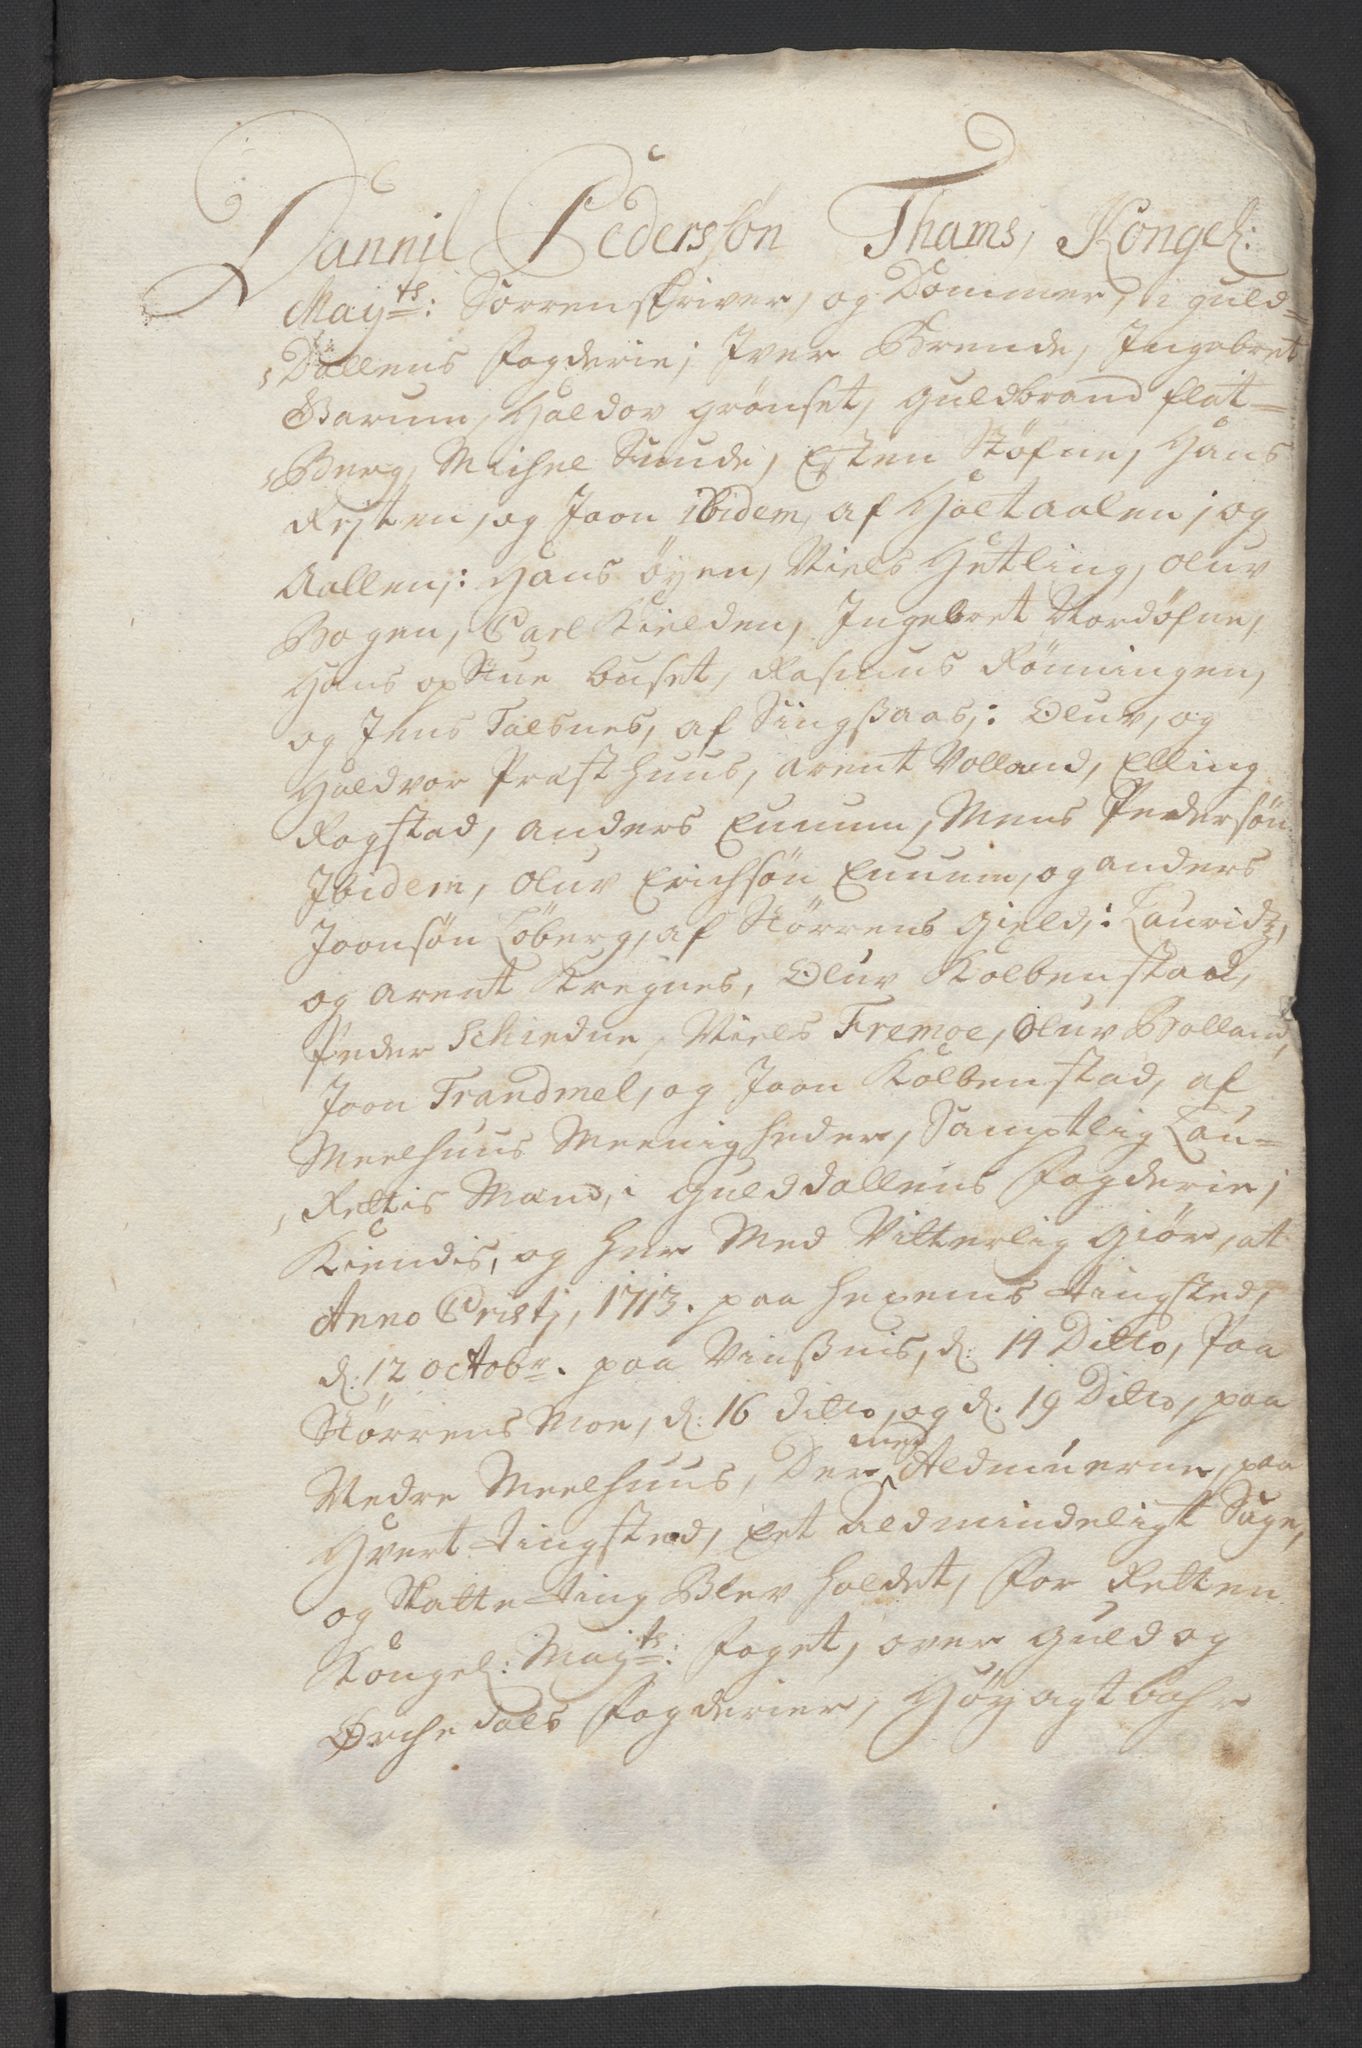 Dannjl Pedersøn Thams, Kongel:
Mayts: Sorrenskriver, og Dommer, i guld=
Dallens fogderie; Iver Brende, Ingebret
Barum, Haldor grønset, guldbrand flat=
Berg, Michel Sunde, Esten Støfne, Hans
Rejten, og Joon ibidem, af Holtaalen; og
Aallen,: Hans øyen, Niels Hetling, oluv
Bogen, Carl Kielden, Ingebret Nordøfne,
Hans opStue buset, Rasmus Rømingen,
og Jens Talsnes, af Singßaas,: Oluv, og
Haldvor Præsthuus, arent Volland, Elling
Rogstad, anders Ennum, Mens Pedersøn
Ibidem, oluv Erichsøn Ennum, og anders
Joonsøn Løberg, af Størrens gield,: Lauridtz,
og arent Kregnes, Oluv Kolbenstad,
Peder Schiedne, Niels Fremoe, oluv Bolland,
Joon Trandmel, og Joon Kolbenstad, af
Meelhuus Meenigheder, Samptlig Lau=
Rettis Mænd, i guldallens fogderie;
Kiendis, og her Med Vitterlig giør, at
Anno Cristj, 1713. paa hexems tingsted,
d: 12 octobr. paa Vinßnis, d: 14 Ditto, paa
Størrens Moe, d: 16 ditto, og d. 19 Ditto, paa
Nedre Meelhuus, Der med Aldmuerne, paa
Hvert tingsted, Eet Aldmindeligt Sage,
og Skatte ting Blev holdet, for Retten
Kongel: Mayts: foget, over guld og
Ørchedals fogderier, Høyagtbahr